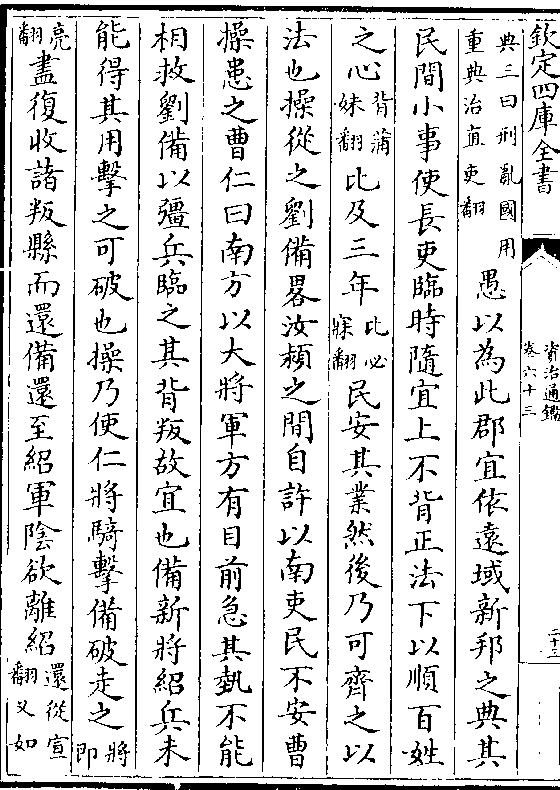 欽定四庫全書
資治通鑑
卷六十三
二十二
典三曰刑亂國用
重典治直吏翻
愚以為此郡宜依遠域新邦之典其
民間小事使長吏臨時隨宜上不背正法下以順百姓
之心背蒲妹翻比及三年比必寐翻民安其業然後乃可齊之以
法也操從之劉備畧汝潁之間自許以南吏民不安曹
操患之曹仁曰南方以大將軍方有目前急其埶不能
相救劉備以彊兵臨之其背叛故宜也備新將紹兵未
能得其用擊之可破也操乃使仁將騎擊備破走之將即
亮翻盡復收諸叛縣而還備還至紹軍陰欲離紹還從宣翻又如